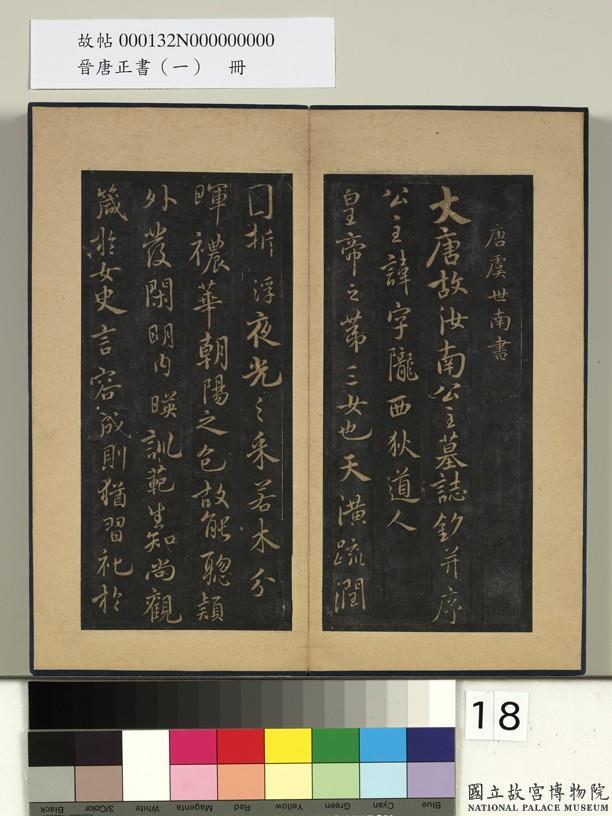 故帖 000132N000000000
晉唐正書（一） 冊
唐虞世南書
大唐故汝南公主墓誌銘并序
公主諱字隴西狄道人
皇帝之第三女也天潢疏潤
圓折浮夜光之采若木分
暉穠華朝陽之色故能聰穎
外發閑明內暎訓範生知尚觀
箴於女史言容成則猶習礼於
18
Black
3/Color
White
Magenta
Red
Yellow
Green
Cyan
Blue
國立故宮博物院
NATIONAL PALACE MUSEUM